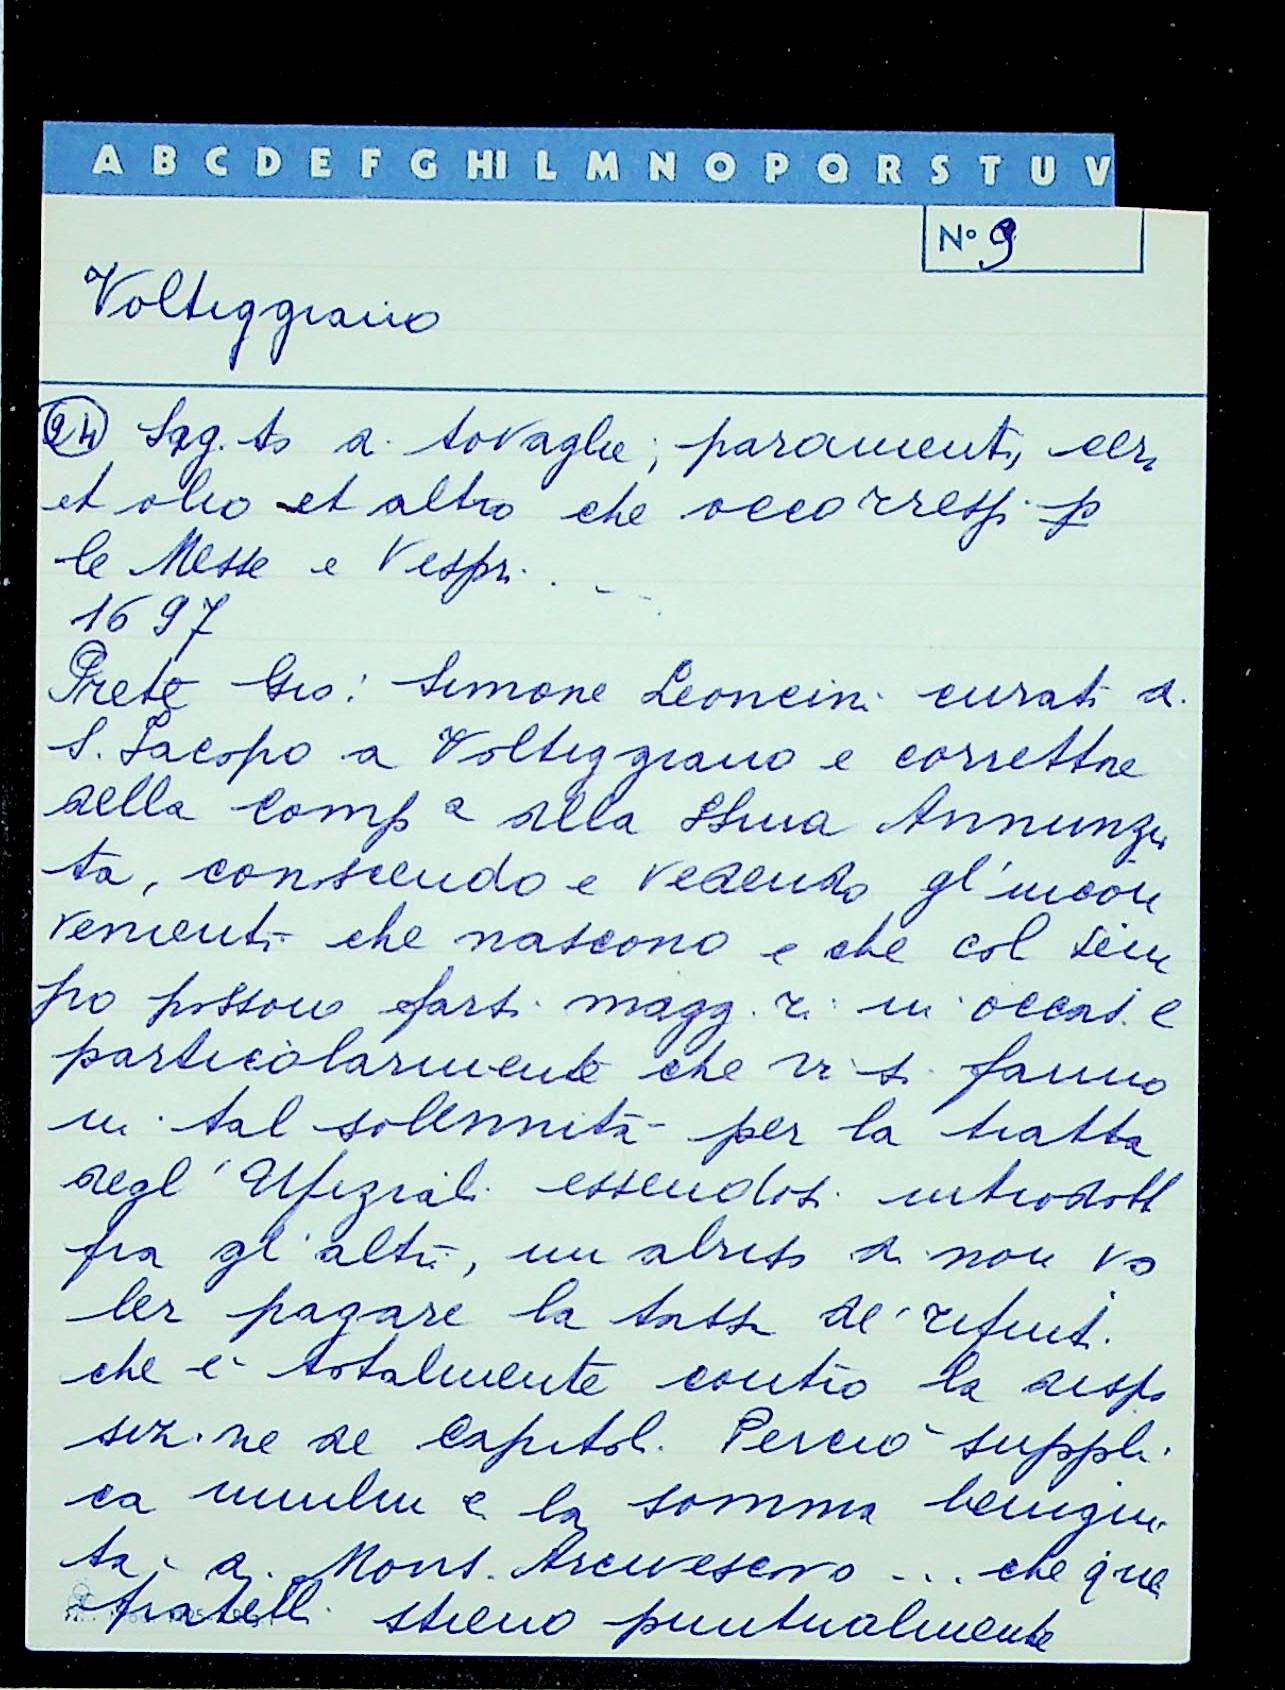 A B C D E F G HI L M N O P Q R S T U V
Nº 9
Volteggiano
24 Sag.to di tovaglie, paramenti, cera
et olio et altro che occorressi p
le Messe e Vespri. . - -
1697
Prete Gio: Simone Leoncini curato di
S. Jacopo a Volteggiano e correttore
della Compa della SSma Annunzia
ta, conoscendo e vedendo gl'incon
venienti che nascono e che col tem
po possono farsi magg.ri in occas.e
particolarmente che vi si fanno
in tal solennità per la tratta
degl'Ufiziali essendosi introdott
fra gl'altri, un abuso di non vo
ler pagare la tassa de' rifiuti
che è totalmente contro la dispo
siz.ne de Capitoli. Perciò suppli
ca umilm.e la somma benigni
tà di Mons. Arcivescovo ... che que
fratelli stieno puntualmente